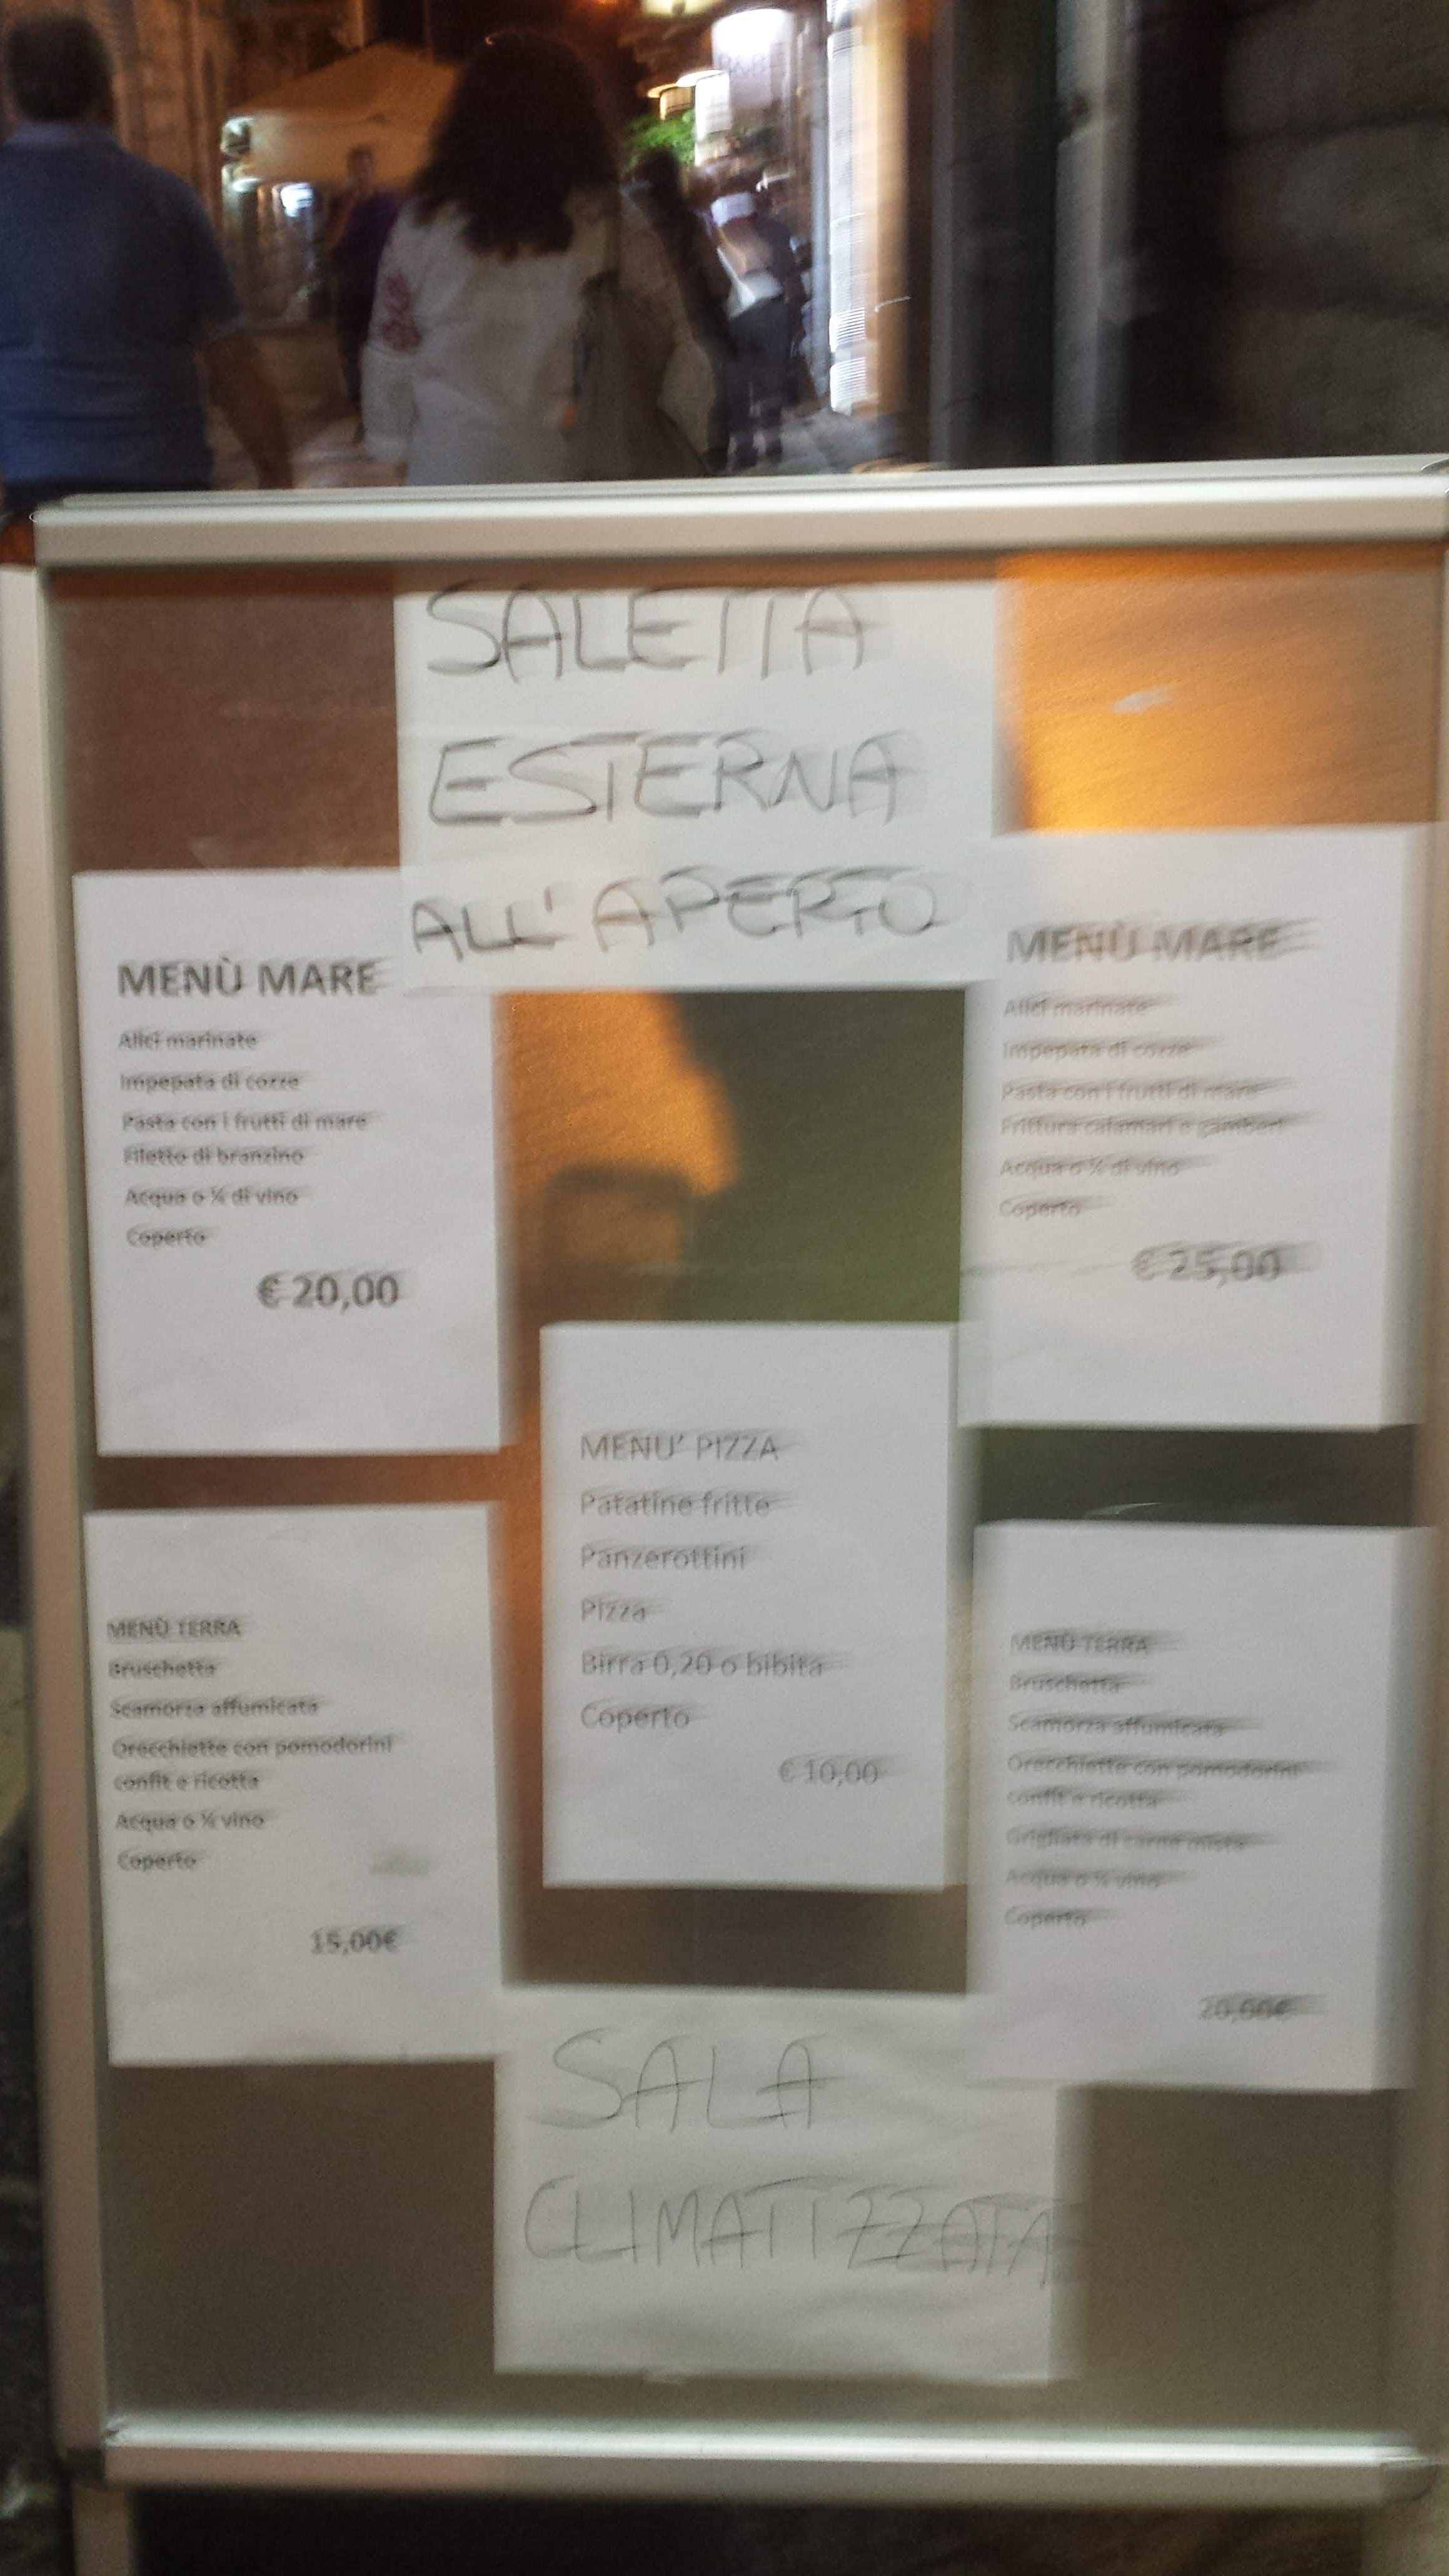 SALETTA
ESTERNA
ALL'APERTO
MENÙ MARE
Alici marinate
Impepata di cozze
Pasta con i frutti di mare
Filetto di branzino
Acqua o ¼ di vino
Coperto
€ 20,00
MENÙ MARE
Alici marinate
Impepata di cozze
Pasta con i frutti di mare
Frittura calamari e gamberi
Acqua o ¼ di vino
Coperto
€ 25,00
MENU' PIZZA
Patatine fritte
Panzerottini
Pizza
Birra 0,20 o bibita
Coperto
€ 10,00
MENÙ TERRA
Bruschetta
Scamorza affumicata
Orecchiette con pomodorini
confit e ricotta
Acqua o ¼ vino
Coperto
15,00€
MENÙ TERRA
Bruschetta
Scamorza affumicata
Orecchiette con pomodorini
confit e ricotta
Grigliata di carne mista
Acqua o ¼ vino
Coperto
20,00€
SALA
CLIMATIZZATA